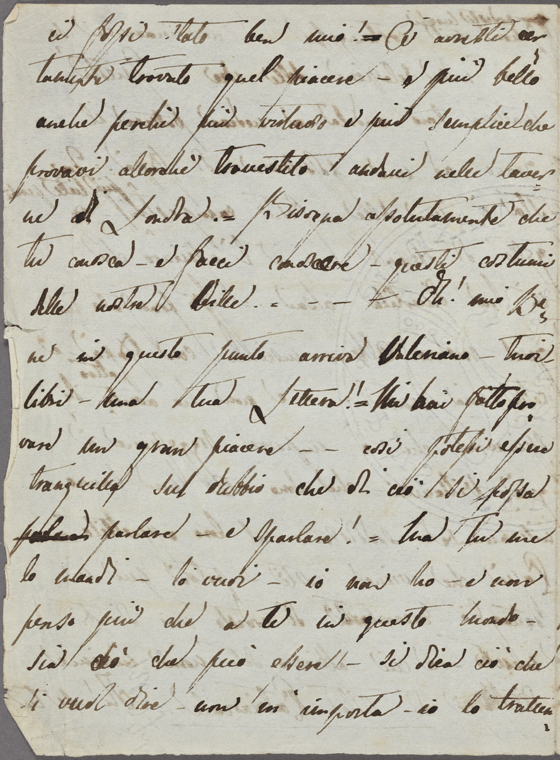 ci fossi stato ben mio! = Ci avresti cer
tamente trovato quel piacere – e più bello
anche perché più virtuoso e più semplice che
provavi allorché travestito andavi nelle taver
ne di Londra. = Bisogna assolutamente che
tu conosca – e facci conoscere – questi costumi
delle nostre Ville. - - - - + Oh! mio Be
ne in questo punto arriva Valeriano – tuoi
libri – una tua Lettera!! = Mi hai fatto pro
vare un gran piacere – – così potessi essere
tranquilla sul dubbio che di ciò si possa
parlare – e sparlare! = Ma tu me
lo mandi – lo vuoi – io non ho – e non
penso più che a te in questo mondo –
sia ciò che può essere! – si dica ciò che
si vuol dire – non m'importa – io lo tratten